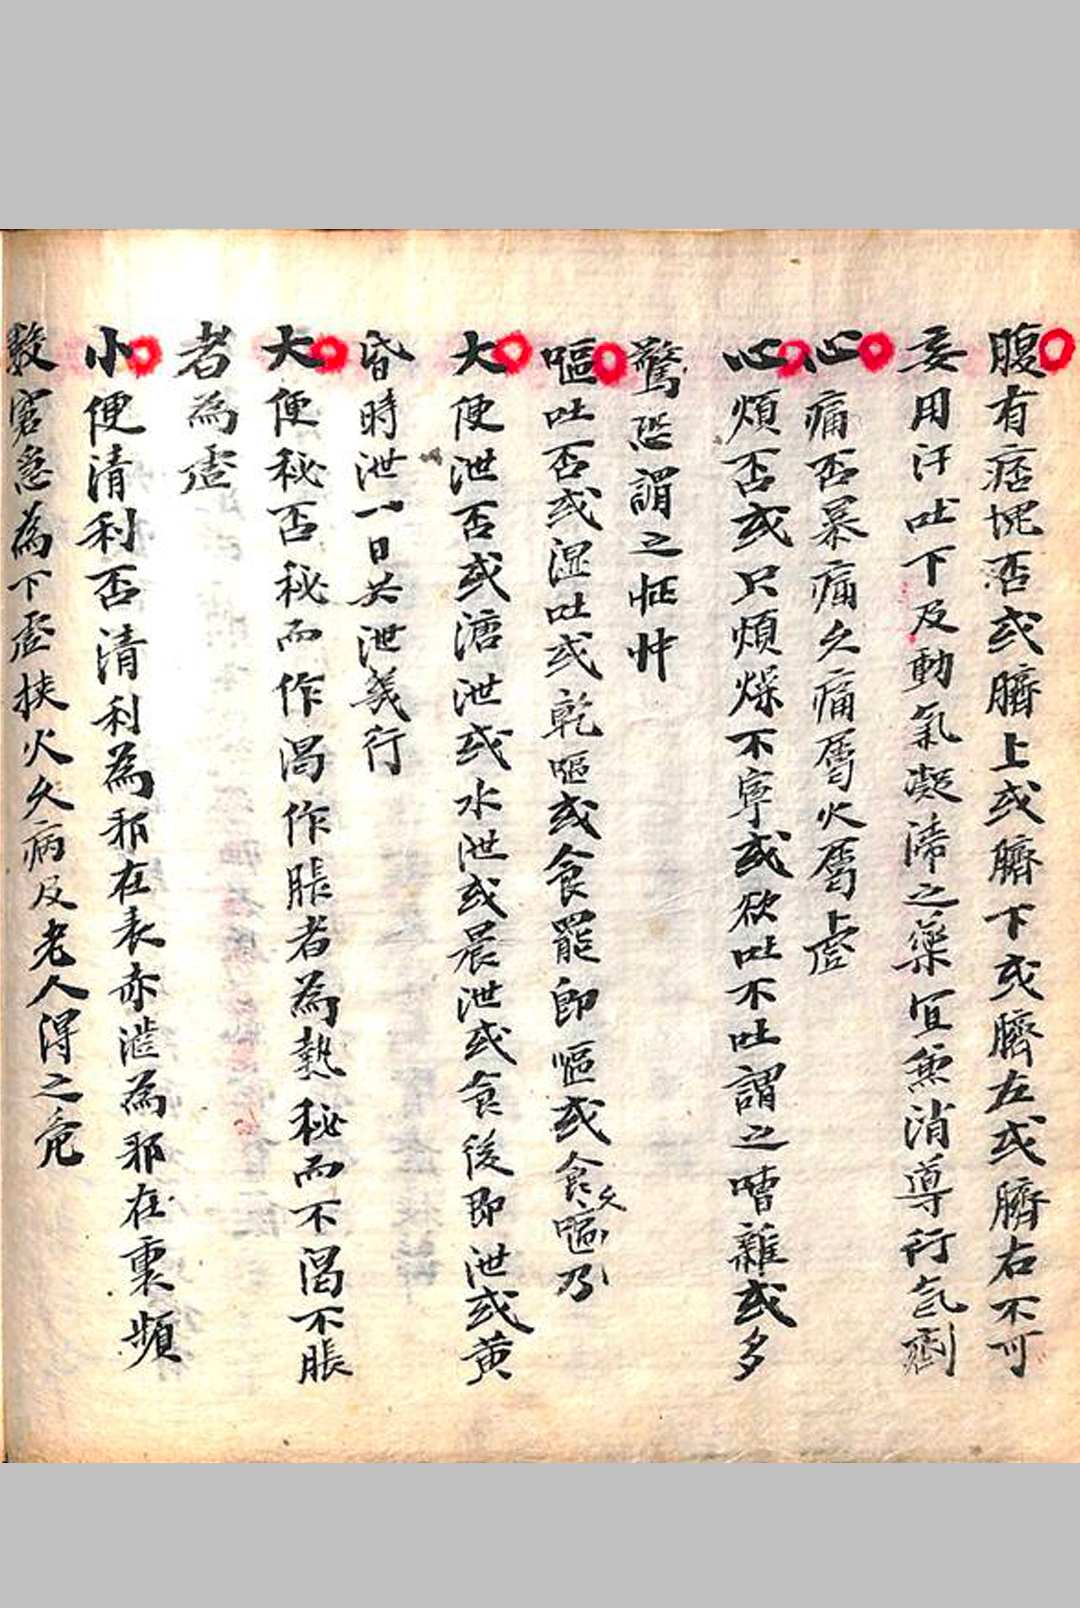 腹有痞塊否或臍上或臍下或臍左或臍右不可
妄用汗吐下及動氣凝滯之藥宜兼消導行氣劑
心痛否暴痛久痛屬火屬虛
心煩否或只煩燥不寧或欲吐不吐謂之嘈雜或多
驚恐謂之怔忡
嘔吐否或湿吐或乾嘔或食罷即嘔或食久嘔乃
大便泄否或溏泄或水泄或晨泄或食後即泄或黄
昏時泄一日共泄幾行
大便秘否秘而作渴作脹者為熱秘而不渴不脹
者為虛
小便清利否清利為邪在表赤澁為邪在裏頻
数窘急為下虛挟火久病及老人得之危